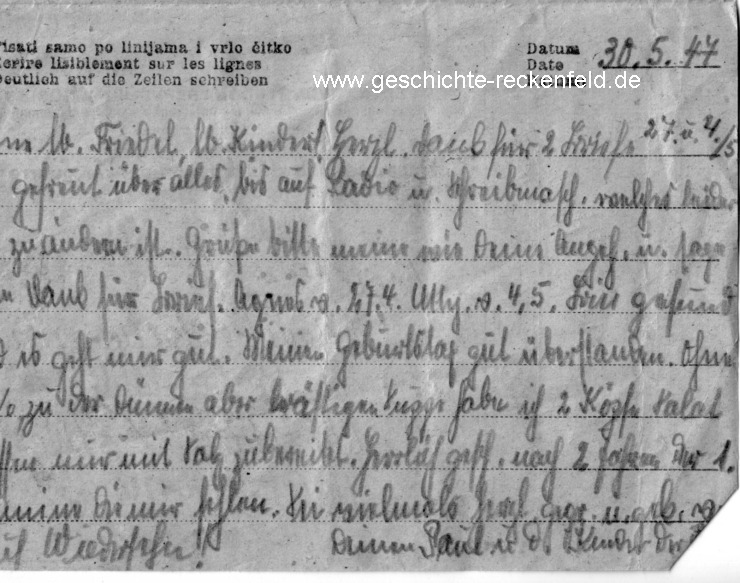 Pisati samo po linijama i vrlo čitko
Ecrire lisiblement sur les lignes
Deutlich auf die Zeilen schreiben
Datum
Date 30.5.47
www.geschichte-reckenfeld.de
lb. Friedel, lb. Kinder! Herzl. Dank für 2 Briefe 27. u. 4/5
gefreut über alles, bis auf Radio u. Schreibmasch. welches leider
zu ändern ist. Grüße bitte meine wie Deine Angeh. u. sage
Dank für Brief. Agnes v. 27.4. v. 4.5. Bin gesund
es geht mir gut. Meinen Geburtstag gut überstanden. Ohne
zu der dünnen aber kräftigen Suppe habe ich 2 Köpfe Salat
mir mit Salz zubereitet. Herrlich gesch. nach 2 Jahren der 1.
die mir fehlen. Sei vielmals herzl. gegr. u. gek. v.
Wiedersehn! Deinem Paul u. d.